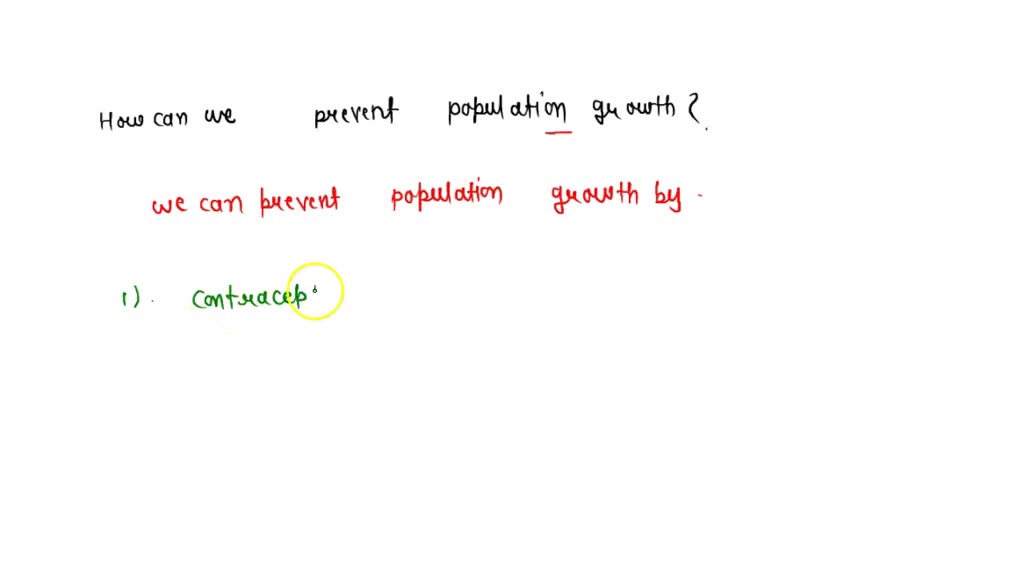 How can we prevent population growth?
we can prevent population growth by -
1). contracep